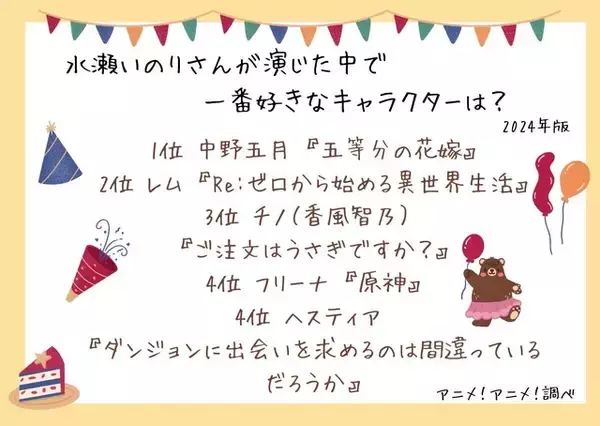 水瀬いのりさんが演じた中で
一番好きなキャラクターは?
2024年版
1位 中野五月『五等分の花嫁』
2位 レム『Re:ゼロから始める異世界生活』
3位 チノ(香風智乃)
『ご注文はうさぎですか?』
4位 フリーナ『原神』
4位 ヘスティア
『ダンジョンに出会いを求めるのは間違っている
だろうか』
アニメ!アニメ!調べ